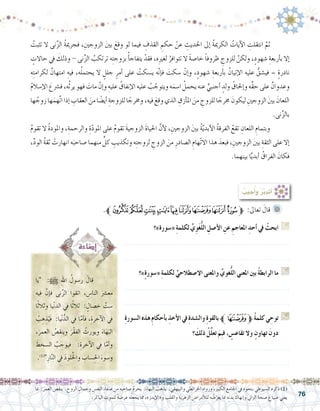 ثمّ انتقلت الآياتُ الكريمةُ إلى الحديثِ عنْ حكمِ القذف فيما لو وقعَ بين الزوجين، فجريمةُ الزّنى لا تثبتُ
إلا بأربعةِ شهودٍ، ولكنَّ للزوجِ ظروفاً خاصةً لا تتوافرُ لغيرِه، فقدْ يتفاجأُ بزوجتِه ترتكبُ الزّنى – وذلك في حالاتٍ
نادرةٍ – فيشقُّ عليه الإتيانُ بأربعةِ شهودٍ، وإنْ سكتَ فإنّه يسكتُ على أمرٍ جللٍ لا يحتملُه، فيه امتهانٌ لكرامتِه
وعدوانٌ على حقِّه وإلحاقُ ولدٍ أجنبيٍّ عنه يحملُ اسمَه ويتوجّبُ عليه الإنفاقُ عليه وإنْ ماتَ فهو يرثُه، فشرعَ الإسلامُ
اللعانَ بينَ الزوجينِ ليكونَ مخرجًا للزوجِ من المأزقِ الذي وقعَ فيه، ومخرجًا للزوجةِ أيضًا من العقابِ إذا اتّهمَها زوجُها
بالزّنى.
وبتمامِ اللعانِ تقعُ الفرقةُ الأبديّةُ بينَ الزوجينِ، لأنَّ الحياةَ الزوجيةَ تقومُ على المودّةِ والرحمةِ، والمودةُ لا تقومُ
إلا على الثقةِ بينَ الزوجينِ، فبعدَ هذا الاتّهامِ الصادرِ من الزوجِ لزوجتِه وتكذيبِ كلٍّ منهما صاحبَه انهارتْ ثقةُ الودِّ،
فكانَ الفراقُ أبديًّا بينهما.
أتدبّر وأجيب
قال تعالى: ﴿ سُورَةٌ أَنزَلْنَاهَا وَفَرَضْنَاهَا وَأَنزَلْنَا فِيهَا آيَاتٍ بَيِّنَاتٍ لَّعَلَّكُمْ تَذَكَّرُونَ ﴾.
ابحثْ في أحدِ المعاجمِ عن الأصلِ اللّغويِّ لكلمةِ «سورة»؟
ما الرابطةُ بينَ المعنى اللّغويِّ والمعنى الاصطلاحيِّ لكلمةِ «سورةٌ»؟
توحي كلمةُ ﴿ وَفَرَضْنَاهَا ﴾ بالقوةِ والشدةِ في الأخذِ بأحكامِ هذه السورةِ
دونَ تهاونٍ ولا تقاعسٍ، فبمَ تعلّلُ ذلك؟
إضاءة
قالَ رسولُ الله ﷺ: "يا
معشرَ الناسِ، اتقوا الزنى فإنَّ فيه
ستَّ خصالٍ: ثلاثًا في الدنيا وثلاثًا
في الآخرةِ، فأمّا في الدُّنيا: فيُذهبُ
البهاءَ، ويورثُ الفقرَ وينقصُ العمرَ،
وأمّا في الآخرةِ: فيوجبُ السخطَ
وسوءَ الحسابِ والخلودَ في النّارِ"
76